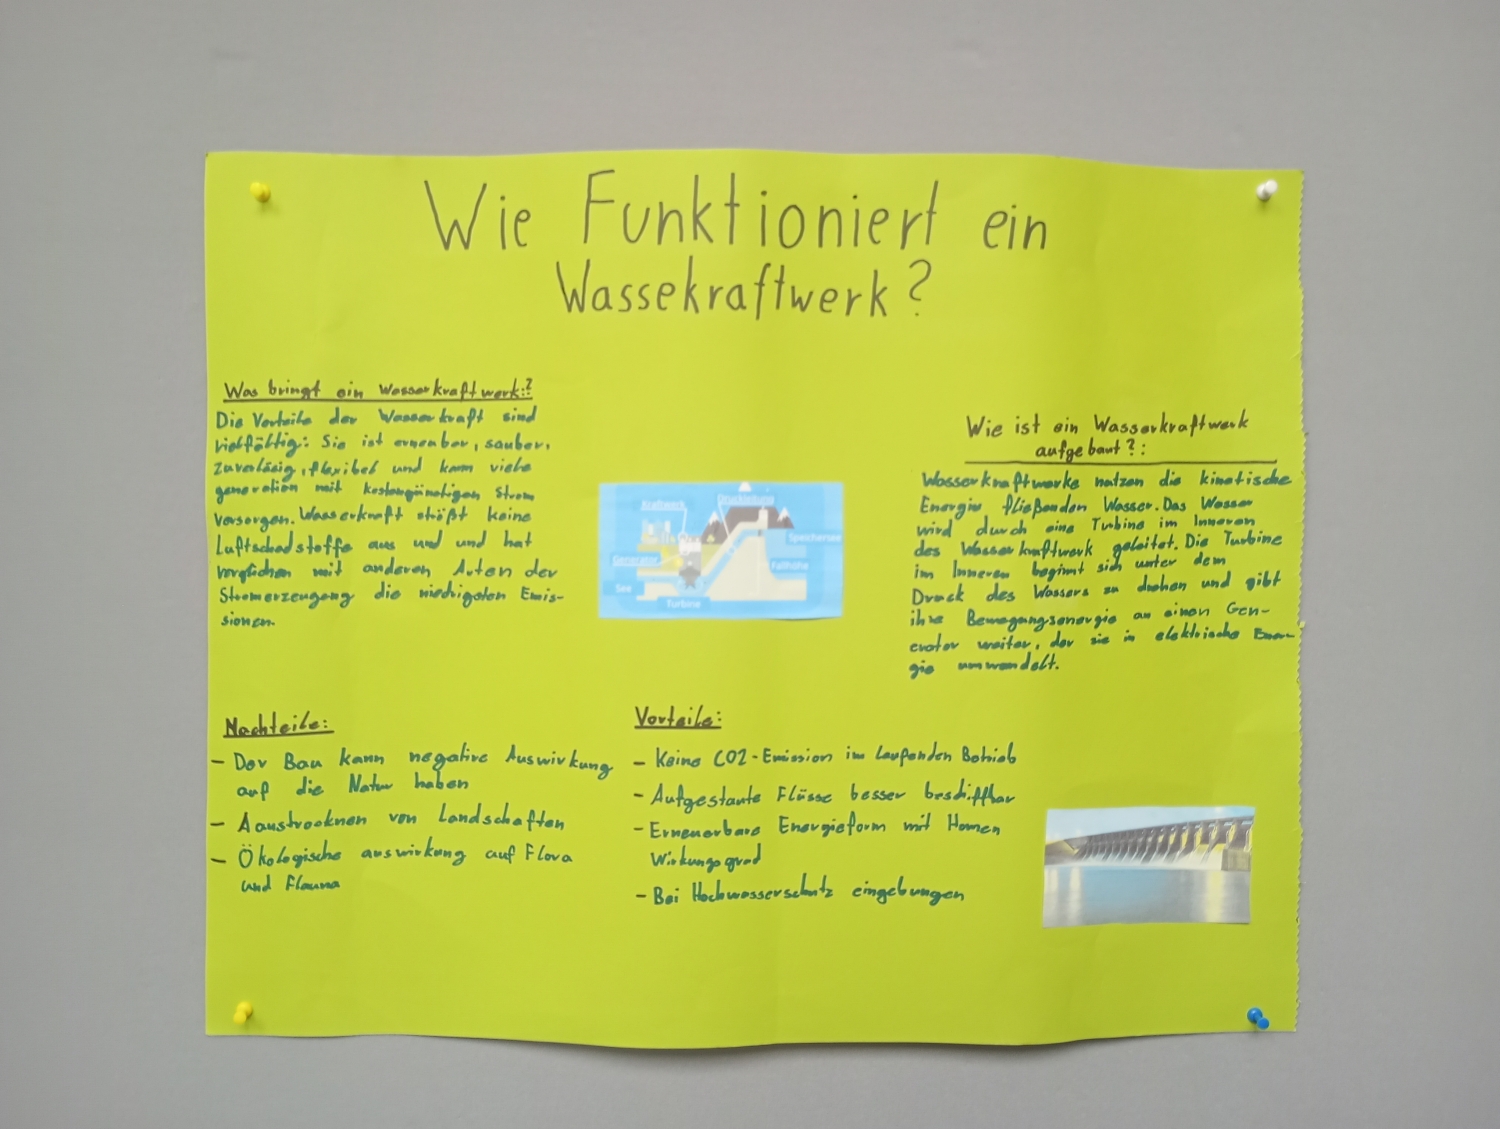 Wie Funktioniert ein
Wassekraftwerk?
Was bringt ein Wasserkraftwerk:?
Die Vorteile der Wasserkraft sind
vielfältig: Sie ist erneubar, sauber,
zuverlässig, flexibel und kann viele
generation mit kostengünstigen Strom
versorgen. Wasserkraft stößt keine
Luftschadstoffe aus und und hat
verglichen mit anderen Arten der
Stromerzeugung die niedrigsten Emis-
sionen.
Kraftwerk
Druckleitung
Speichersee
Generator
Fallhöhe
See
Turbine
Wie ist ein Wasserkraftwerk
aufgebaut?:
Wasserkraftwerke nutzen die kinetische
Energie fließenden Wasser. Das Wasser
wird durch eine Turbine im Inneren
des Wasserkraftwerk geleitet. Die Turbine
im Inneren beginnt sich unter dem
Druck des Wassers zu drehen und gibt
ihre Bewegungsenergie an einen Gen-
erator weiter, der sie in elektrische Ener-
gie umwandelt.
Nachteile:
- Der Bau kann negative Auswirkung
auf die Natur haben
- Aaustrocknen von Landschaften
- Ökologische auswirkung auf Flora
und Flauna
Vorteile:
- Keine CO2-Emission im laufenden Betrieb
- Aufgestaute Flüsse besser beschiffbar
- Erneuerbare Energieform mit
Wirkungsgrad
- Bei Hochwasserschutz eingebungen